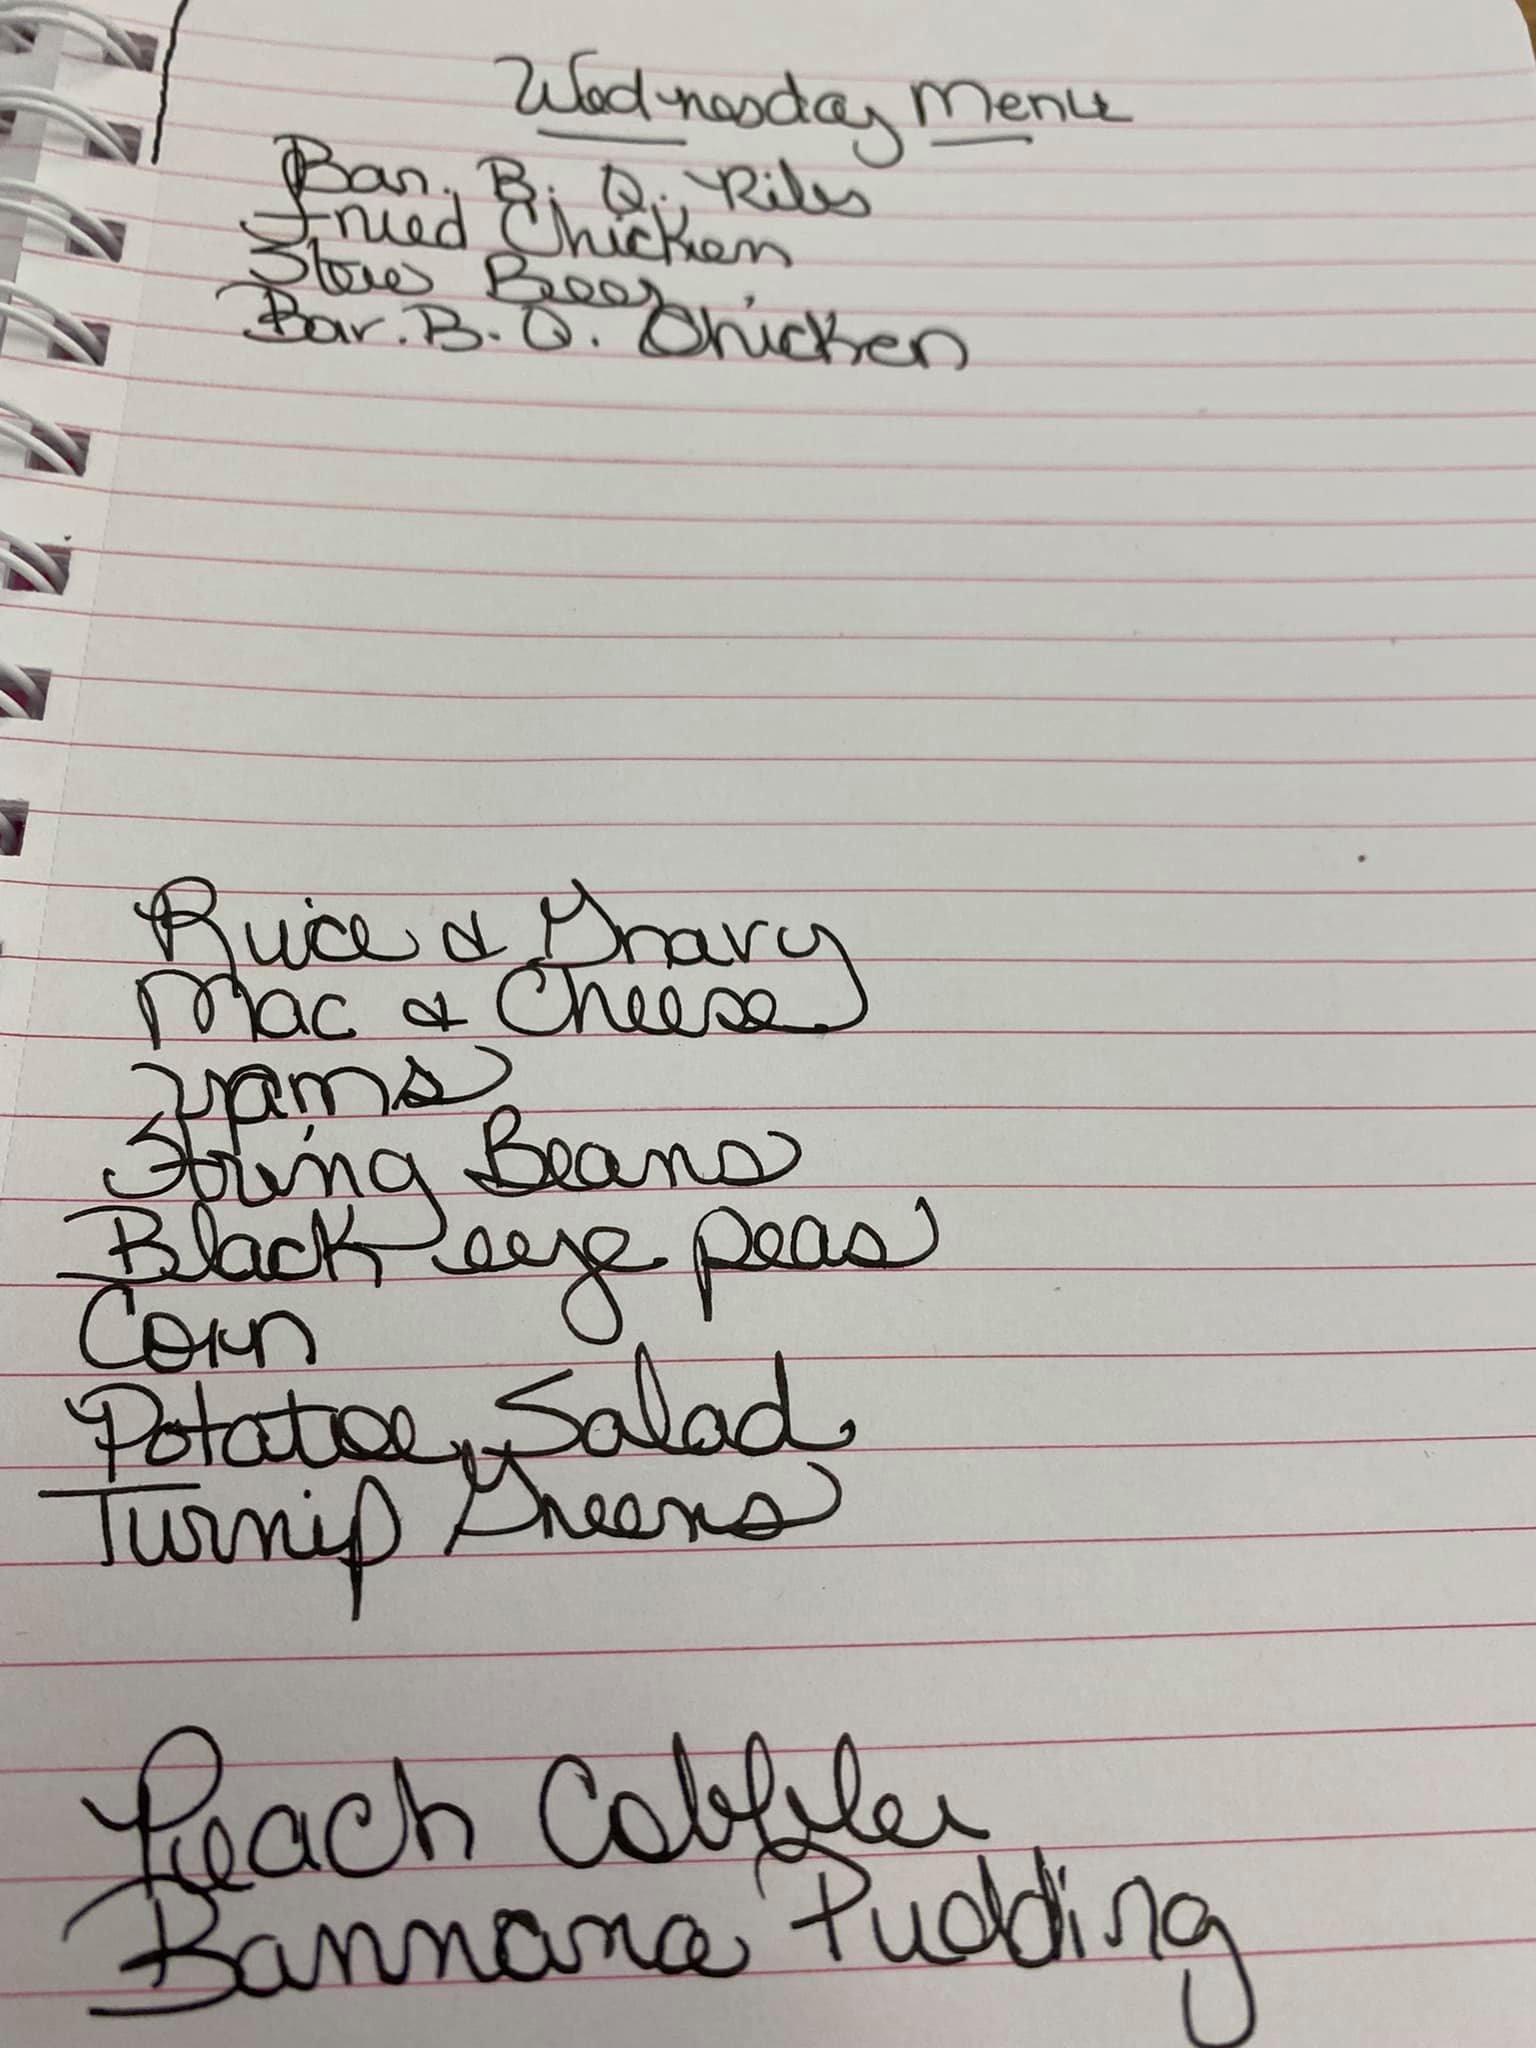 Wednesday Menu
Bar. B. Q. Ribs
Fried Chicken
Stew Beef
Bar. B. Q. Chicken
Rice & Gravy
Mac & Cheese
Yams
String Beans
Black eye peas
Corn
Potatoe Salad
Turnip Greens
Peach Cobbler
Bannana Pudding